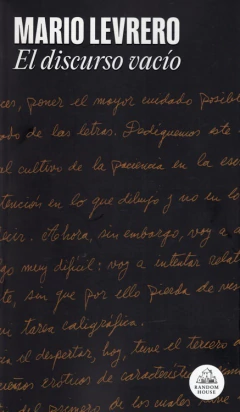 MARIO LEVRERO
El discurso vacío
ces, poner el mayor cuidado posibl
ado de las letras. Dediquemos este
al cultivo de la paciencia en la esc
tención en lo que dibujo y no en lo
ecir. Ahora, sin embargo, voy a a
go muy difícil: voy a intentar relat
te, sin que por ello pierda de vis
tarea caligráfica.
el despertar, hoy, tuve el tercero
sueños eróticos de característic
primeros de los cuales an
RANDOM
HOUSE